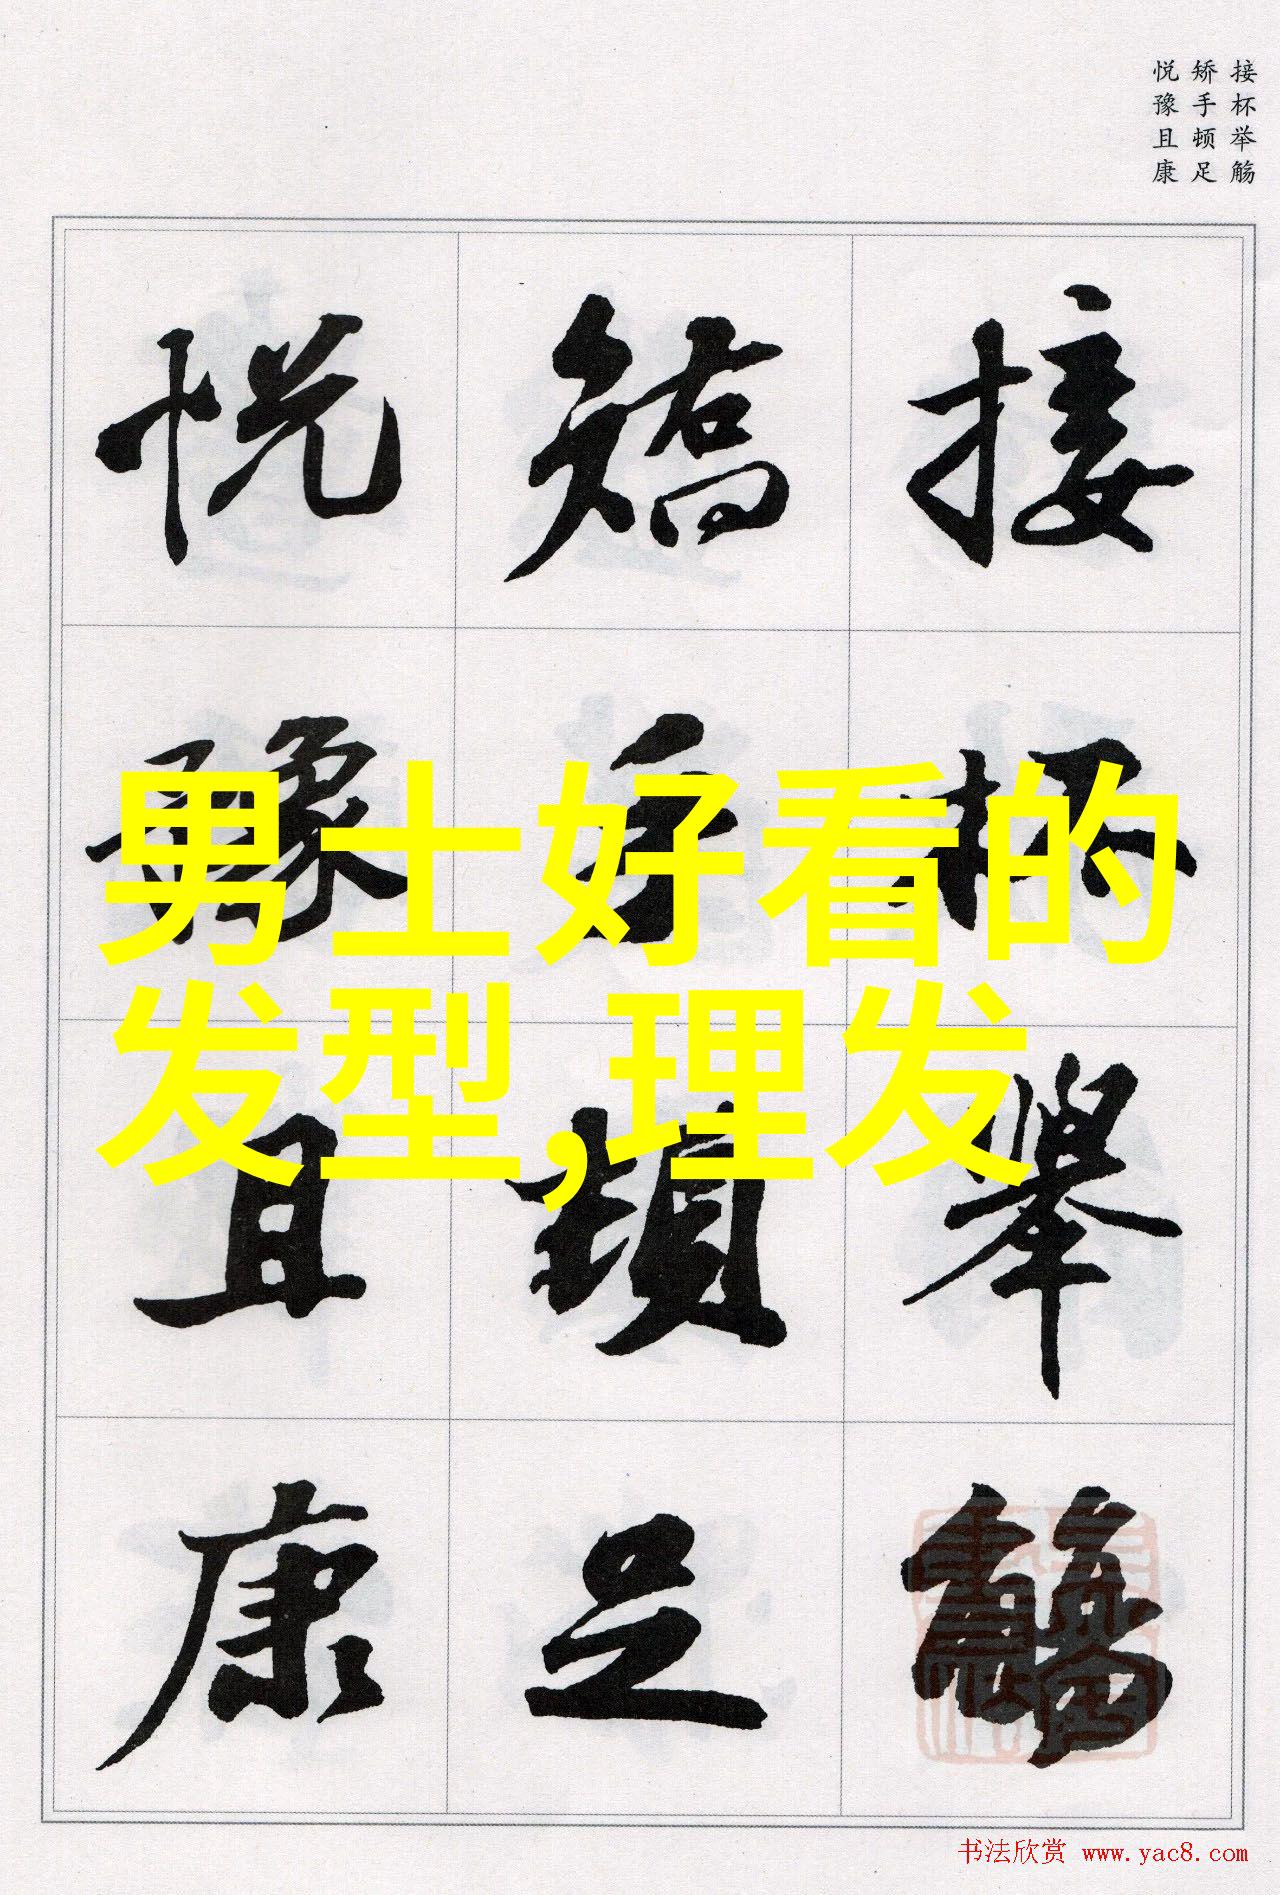 接杯举觞
矫手顿足
悦豫且康
接杯舉觴
矯手頓足
悦豫且康
男士好看的
发型,理发
书法欣赏 www.yac8.com